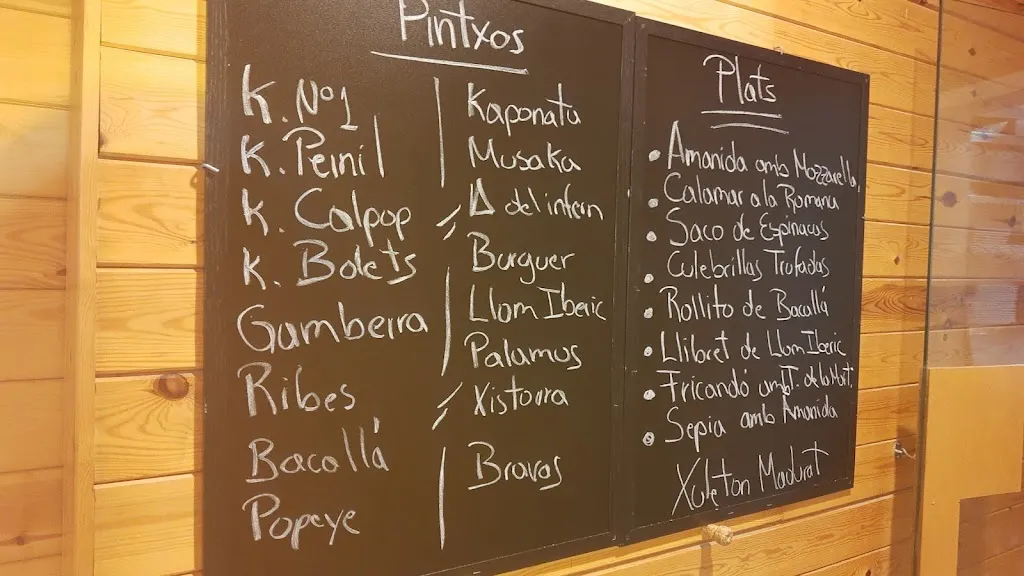 Pintxos
K. Nº1
K. Peinil
K. Calpop
K. Bolets
Gambeira
Ribes
Bacallá
Popeye
Kaponata
Musaka
Δ del infern
Burguer
Llom Iberic
Palamos
Xistorra
Bravas
Plats
• Amanida amb Mozzarella
• Calamar a la Romana
• Saco de Espinacas
• Culebrillas Trufadas
• Rollito de Bacallá
• Llibret de Llom Iberic
• Fricandó amb T. de la Mort.
• Sepia amb Amanida
Xuleton Madurat